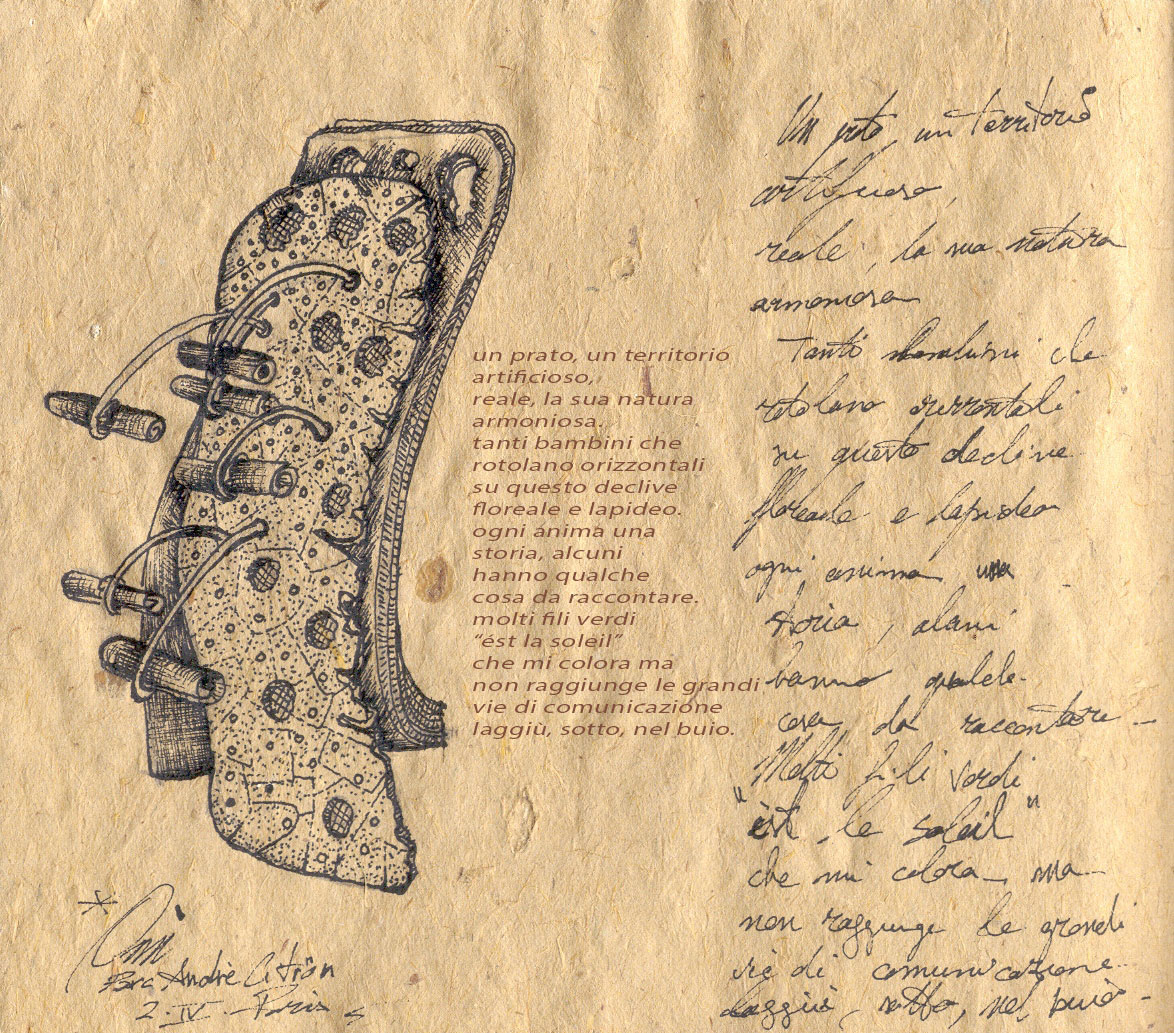 un prato, un territorio
artificioso,
reale, la sua natura
armoniosa.
tanti bambini che
rotolano orizzontali
su questo declive
floreale e lapideo.
ogni anima una
storia, alcuni
hanno qualche
cosa da raccontare.
molti fili verdi
“ést la soleil”
che mi colora ma
non raggiunge le grandi
vie di comunicazione
laggiù, sotto, nel buio.
Un prato, un territorio
artificioso,
reale, la sua natura
armoniosa
Tanti bambini che
rotolano orizzontali
su questo declive
floreale e lapideo
ogni anima una
storia, alcuni
hanno qualche
cosa da raccontare
Molti fili verdi
"èst le soleil"
che mi colora ma
non raggiunge le grandi
vie di comunicazione
laggiù, sotto, nel buio
Andrè
2.IV.